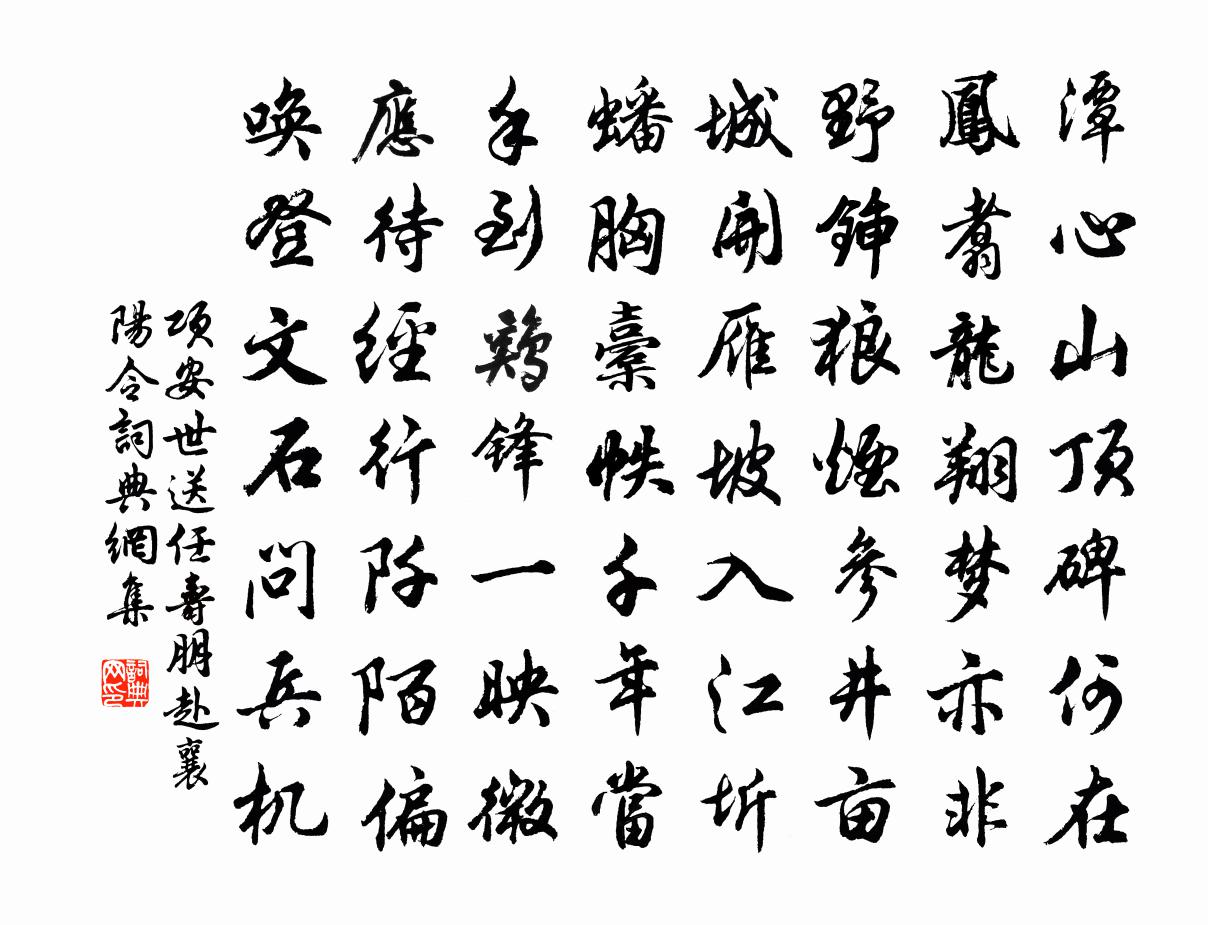 潭心山頂碑何在
鳳翥龍翔梦亦非
野鍤狼煙參井亩
城開雁坡入江圻
蟠胸藁帙千年當
手到鷄鋒一映微
應待經行阡陌偏
喚登文石問兵机
項安世送任壽朋赴襄
陽令詞典網集
詞典
网印